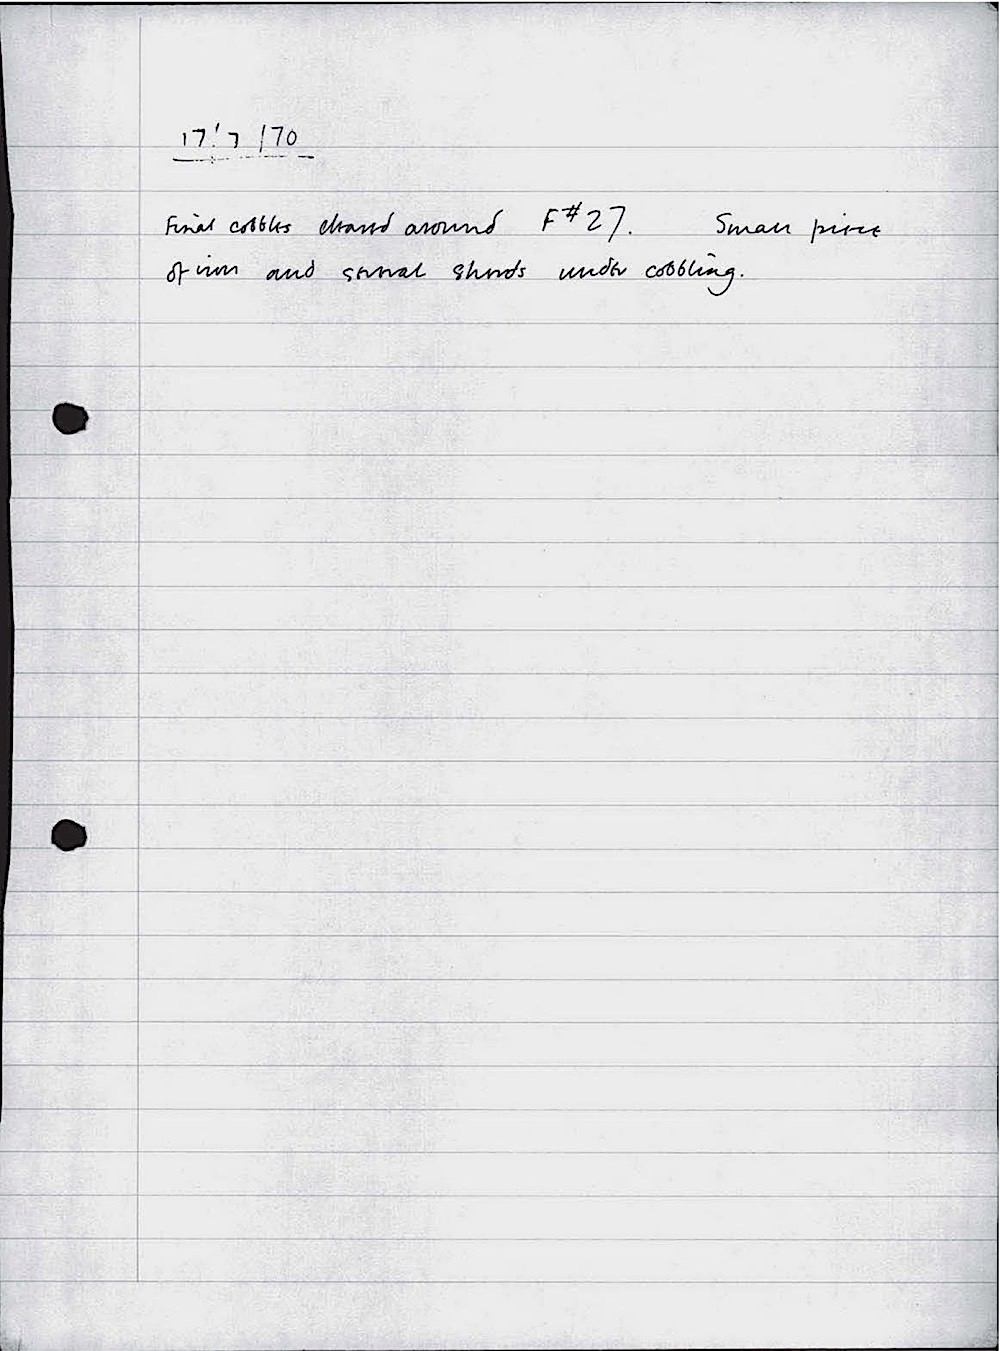 17/7/70
Final cobbles cleared around F#27. Small piece
of iron and several sherds under cobbling.